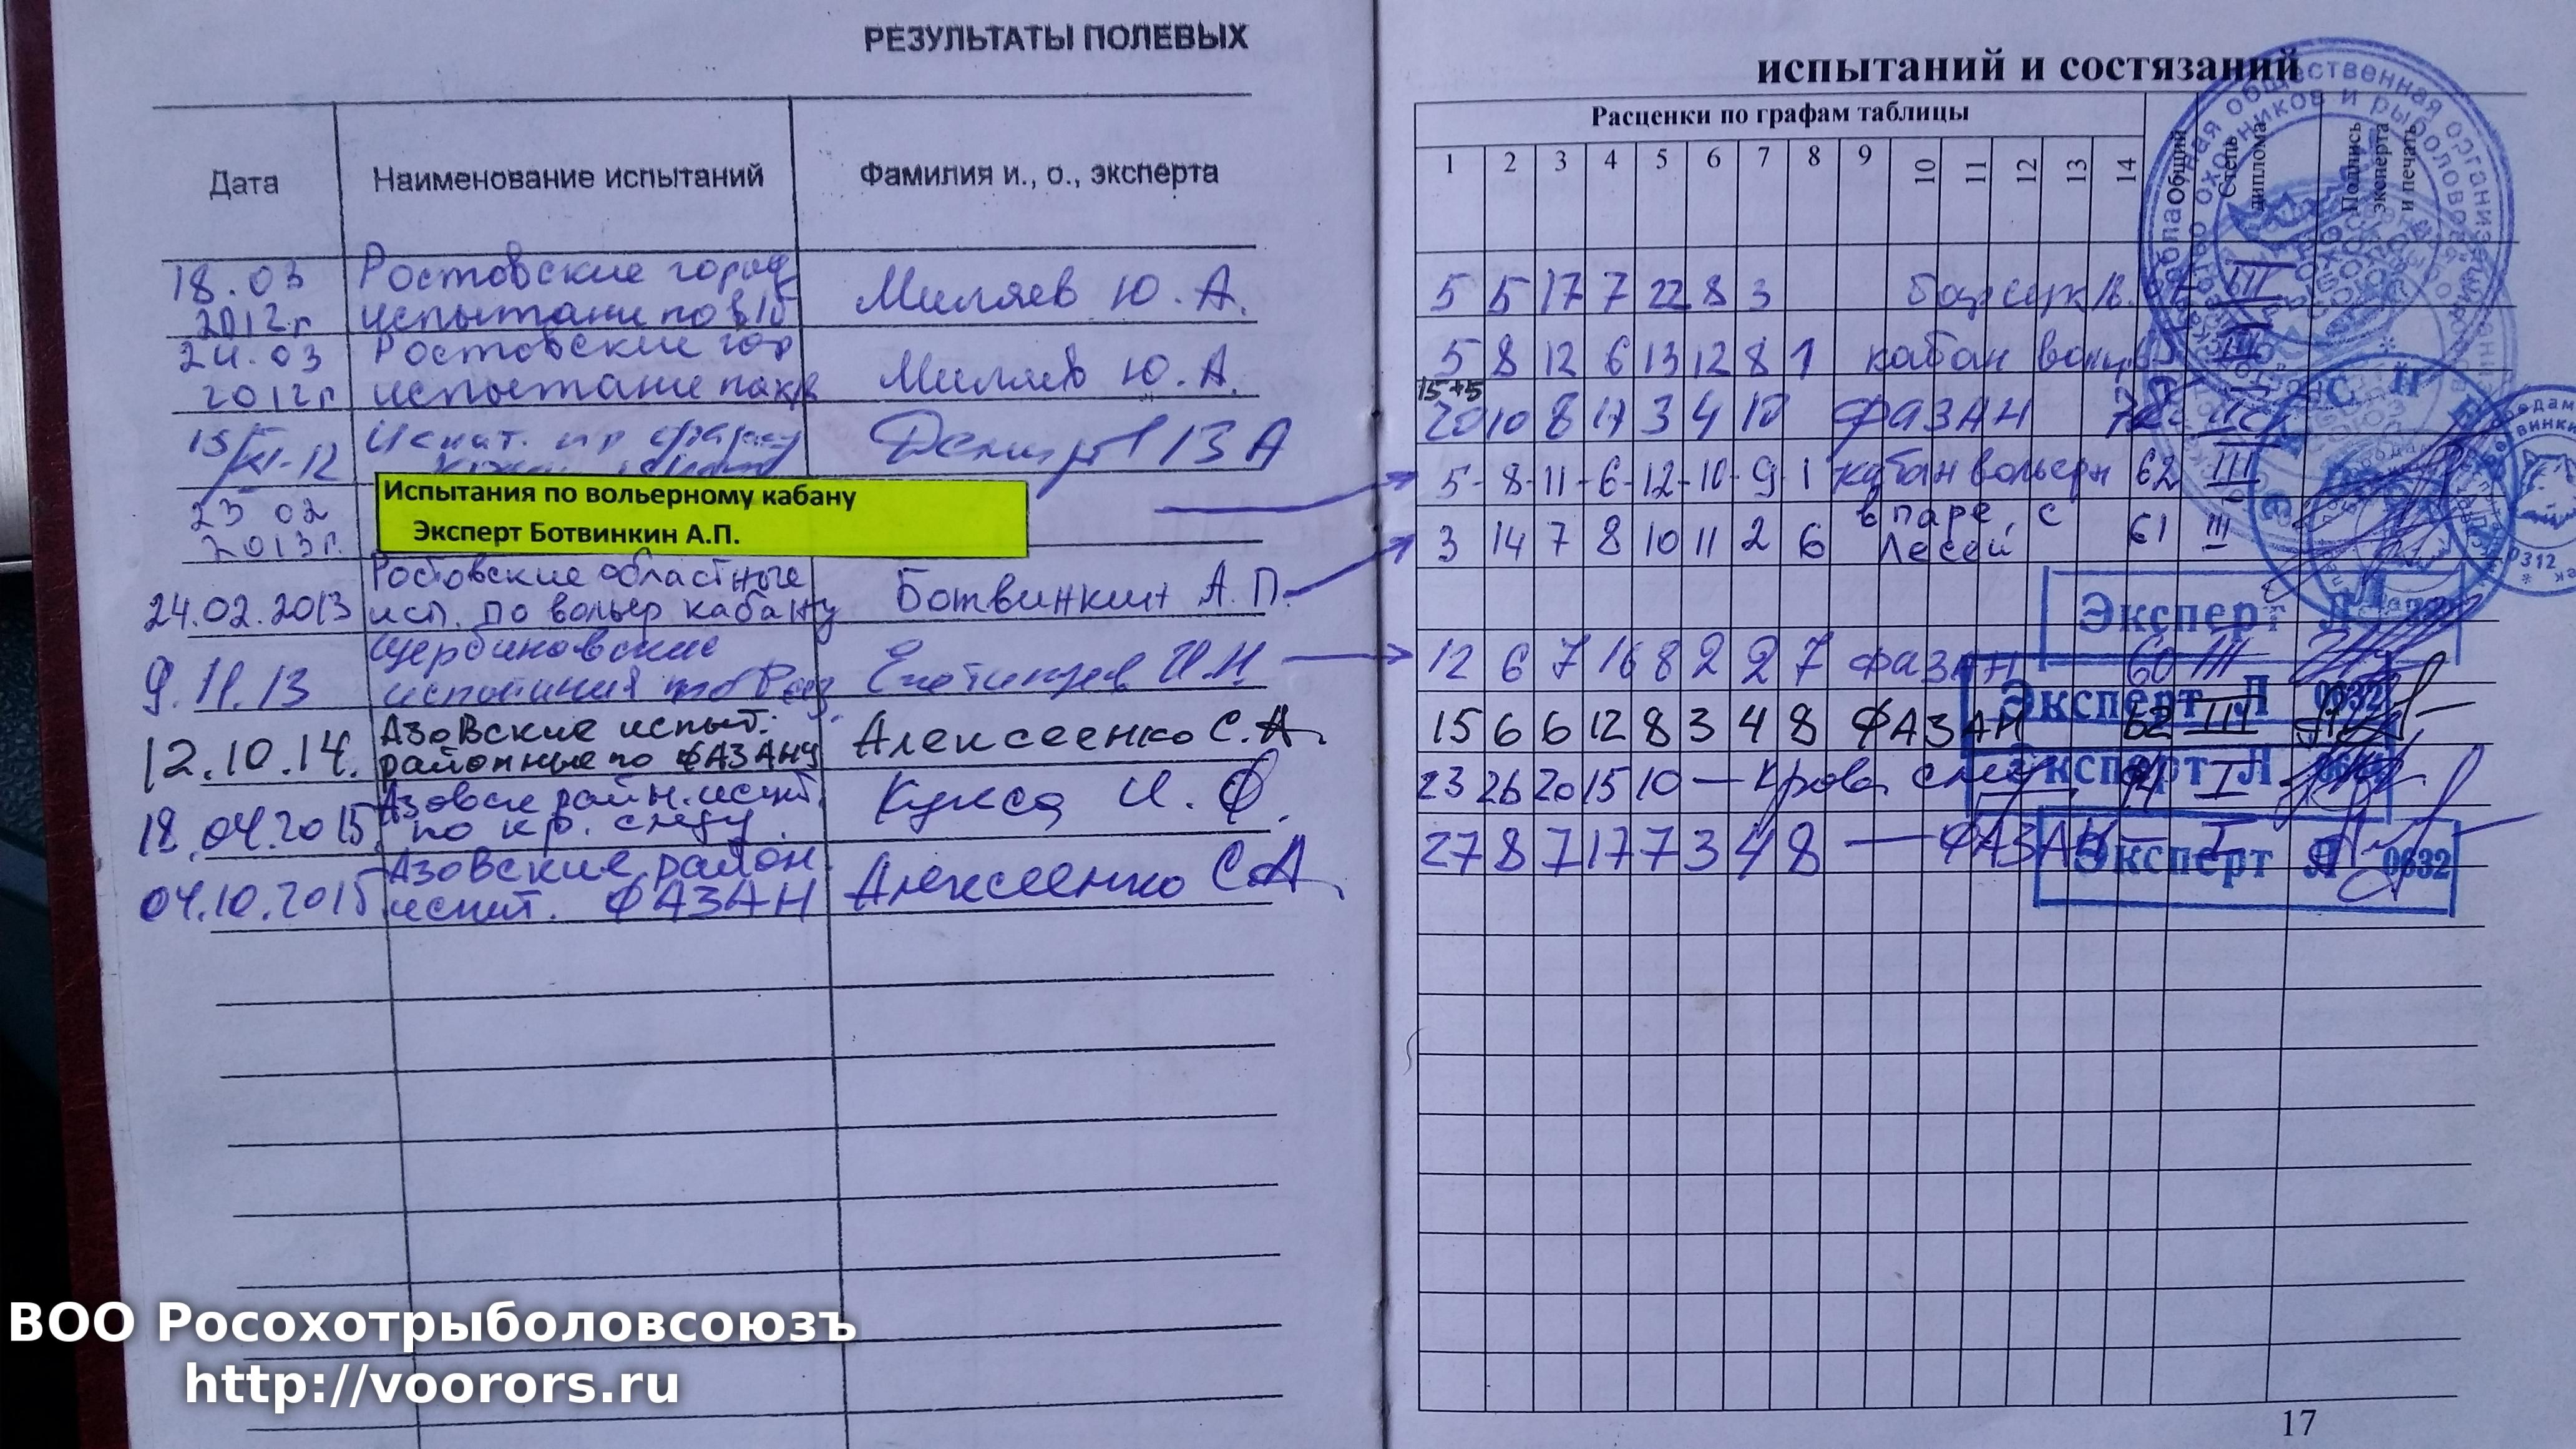 РЕЗУЛЬТАТЫ ПОЛЕВЫХ
Дата
Наименование испытаний
Фамилия и., о., эксперта
18.03
2012г
Ростовские город
испытани по
Миляев Ю.А.
24.03
2012г
Ростовские гор
испытание
Миляев Ю.А.
15/XI-12
Испыт.
23 02
2013г.
Испытания по вольерному кабану
Эксперт Ботвинкин А.П.
24.02.2013
Ростовские областные
исп. по вольер кабану
Ботвинкин А.П.
9.11.13
Щербиновские
испытания по
И.Н.
12.10.14.
Азовские испыт.
районные по ФАЗАНУ
Алексеенко С.А.
18.04.2015.
Азовск район. испыт.
по кр. следу.
Кукса И.Ф.
04.10.2015
Азовские район
испыт. ФАЗАН
Алексеенко С.А.
испытаний и состязаний
Расценки по графам таблицы
1 2 3 4 5 6 7 8 9 10 11 12 13 14
Общий
Степь
диплома
Подпись
эксперта
и печать
5 5 17 7 22 8 3 барсук III
5 8 12 6 13 12 8 1 кабан III
15+5
20 10 8 17 3 4 10 ФАЗАН
5-8-11-6-12-10-9-1 кабан вольерн 62 III
3 14 7 8 10 11 2 6 в паре, с 61 III
Лесей
Эксперт Л
12 6 7 16 8 2 2 7 ФАЗАН 60 III
Эксперт Л 0632
15 6 6 12 8 3 4 8 ФАЗАН 62 III
Эксперт Л
23 26 20 15 10 — Кров. следу I
27 8 7 17 7 3 4 8 — ФАЗАН I
Эксперт Л 0632
17
ВОО Росохотрыболовсоюзъ
http://voorors.ru